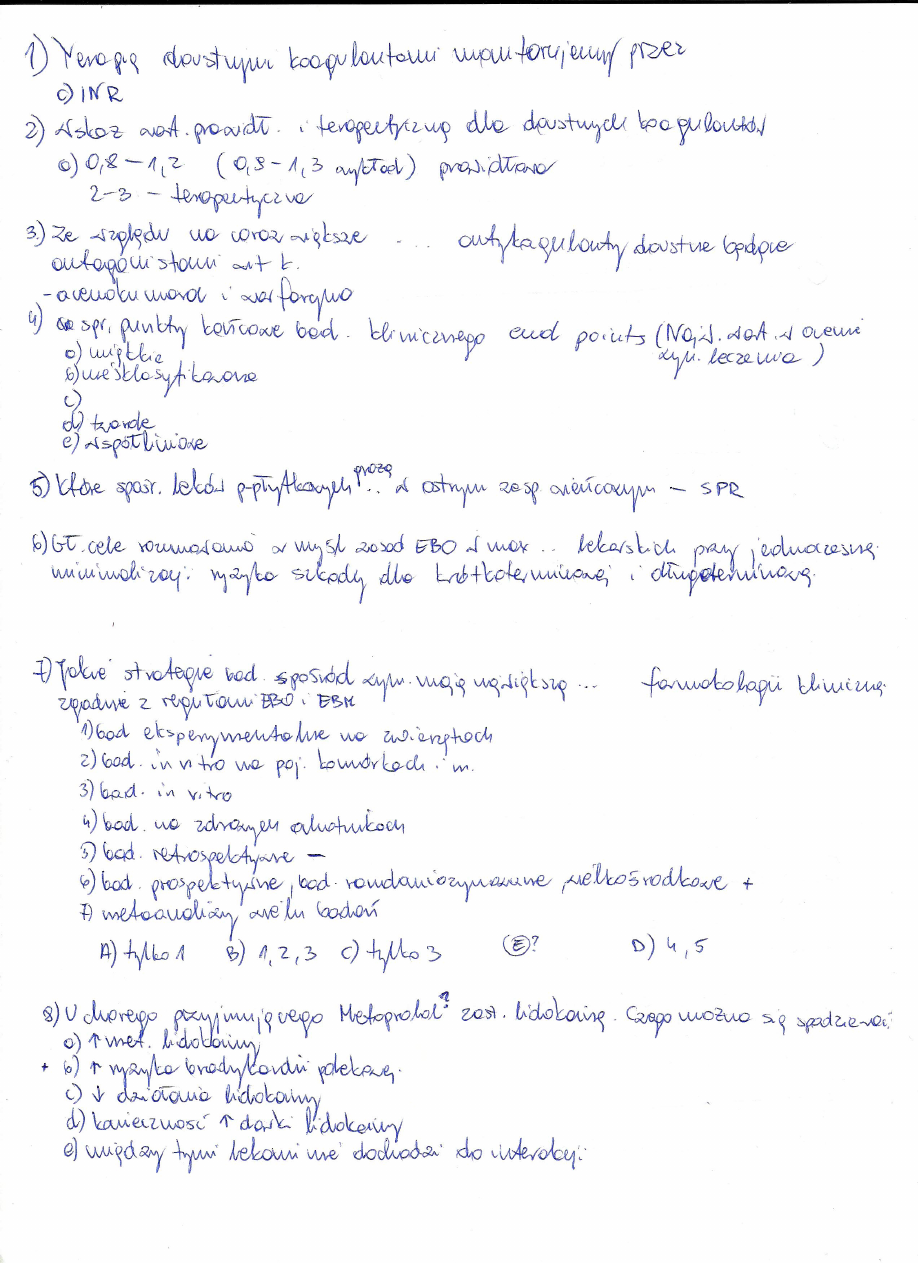 1) Terapię doustnymi koagulantami monitorujemy przez
c) INR
2) Wskaż wart. prawidł. i terapeutyczną dla doustnych koagulantów
a) 0,8 – 1,2 (0,9 – 1,3 wykład) prawidłowa
2–3 – terapeutyczna
3.) Ze względu na coraz większe .... antykagulanty doustne będące
antagonistami wit k.
- acenokumarol i warfaryna
4) spr. punkty końcowe bad. klinicznego end points (Najw. wart. w ocenie
wyn. leczenia)
a) miękkie
b) niesklasyfikowane
c)
d) twarde
e) współliniowe
5) Które spośr. leków p-płytkowych .. w ostrym zesp wieńcowym – SPR
6) Gł. cele rozumowania w myśl zasad EBO w max .. lekarskich przy jednoczesnej
minimalizacji ryzyka szkody dla krótkoterminowej i długoterminową.
7) Jakie strategie bad. spośród wym. mają największą ... farmakologii kliniczną
zgodnie z regułami EBO i EBM
1) bad eksperymentalne na zwierzętach
2) bad. in vitro na poj. komórkach i m.
3) bad. in vitro
4) bad. na zdrowych ochotnikach
5) bad. retrospektywne –
6) bad. prospektywne, bad. randomizowane, wielkośrodkowe +
7) metaanalizy wielu badań
A) tylko 1 B) 1, 2, 3 C) tylko 3 (E)? D) 4, 5
8) U chorego przyjmującego Metoprolol? zast. lidokainę. Czego można się spodziewać:
a) ↑ met. lidokainy
+ b) ↑ ryzyko bradykardii polekowej.
c) ↓ działania lidokainy
d) konieczność ↑ dawki lidokainy
e) między tymi lekami nie dochodzi do interakcji